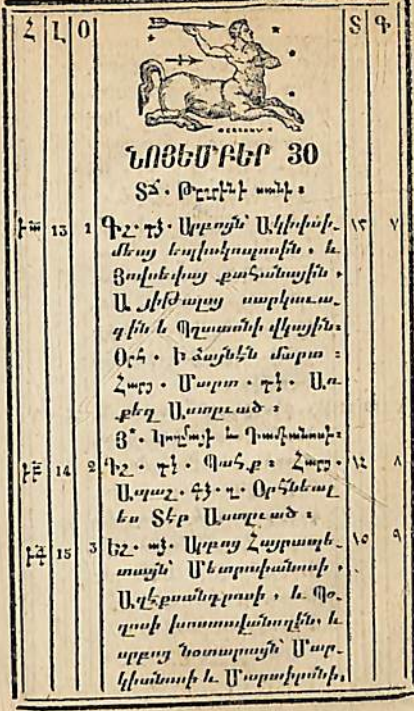 Հ Լ Օ Տ Գ
ՆՈՅԵՄԲԵՐ 30
13 1 Գշ. դձ. Սրբոցն՝ Ակիփսի֊
մեայ եպիսկոպոսին, և
Յովսեփայ քահանային,
Այիթալայ սարկաւա֊
գին և Պղատոնի վկային:
Օրհ. Ի ձայնէն մարտ :
Հարց. Մարտ. դձ. Առ
քեզ Աստուած :
Յ՟. Կոզմայի և Դամիանոսի:
14 2 Դշ. դձ. Պահք : Հարց.
Ապաշ. Օրհնեալ
ես Տէր Աստուած :
15 3 Եշ. աձ. Սրբոց Հայրապե֊
տացն՝ Մետրոփանոսի,
Աղէքսանդրոսի, և Պօ֊
ղոսի խոստովանողին, և
սրբոց նօտարացն՝ Մար֊
կիանոսի և Մարտիրոսի,